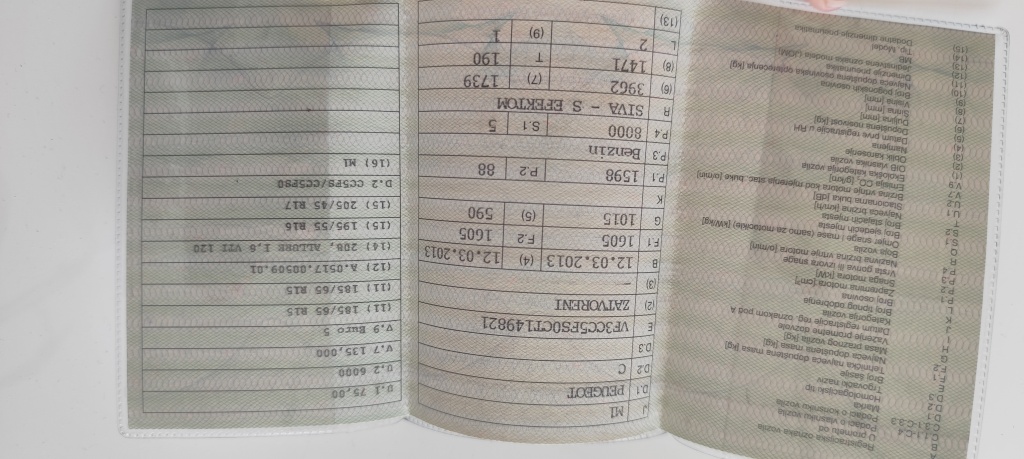 A Registracijska oznaka vozila
B
C.1.1-C.4
C.3.1-C.3.3
D.1 Marka
D.2 Homologacijski tip
D.3 Trgovački naziv
E Broj šasije
F.1 Tehnička najveća dopuštena masa [kg]
F.2 Najveća dopuštena masa [kg]
G Masa praznog vozila [kg]
H Važenje prometne dozvole
I
J Kategorija vozila
K Broj tipnog odobrenja
L Broj osovina
P.1 Zapremina motora [cm³]
P.2 Snaga motora [kW]
P.3 Vrsta goriva ili izvora snage
P.4 Nazivna brzina vrtnje motora [o/min]
R Boja vozila
Q Omjer snage i mase (samo za motocikle) [kW/kg]
S.1 Broj sjedećih mjesta
S.2 Broj stajaćih mjesta
T Najveća brzina [km/h]
U.1 Stacionarna buka [dB]
U.2 Brzina vrtnje motora kod mjerenja stac. buke [o/min]
V.7 Emisija CO₂ [g/km]
V.9 Ekološka kategorija vozila
(1) OIB vlasnika vozila
(2) Oblik karoserije
(3) Namjena
(4) Datum prve registracije u RH
(5) Dopuštena nosivost [kg]
(6) Duljina [mm]
(7) Širina [mm]
(8) Visina [mm]
(9) Broj pogonskih osovina
(13)
(14)
(15)
J M1
D.1 PEUGEOT
D.2 C
D.3
E VF3CC5FS0CT149821
(2) ZATVORENI
(3) –
B 12.03.2013 (4) 12.03.2013
F.1 1605 F.2 1605
G 1015 (5) 590
K
P.1 1598 P.2 88
P.3 Benzin
P.4 8000 S.1 5
R SIVA - S EFEKTOM
(6) 3962 (7) 1739
(8) 1471 T 190
L 2 (9) 1
(13)
U.1 75,00
U.2 6000
V.7 135,000
V.9 Euro 5
(11) 185/65 R15
(11) 185/65 R15
(12) A.0517.00509.01
(14) 208, ALLURE 1,6 VTI 120
(15) 195/55 R16
(15) 205/45 R17
D.2 CC5F8/CC5FS0
(16) M1